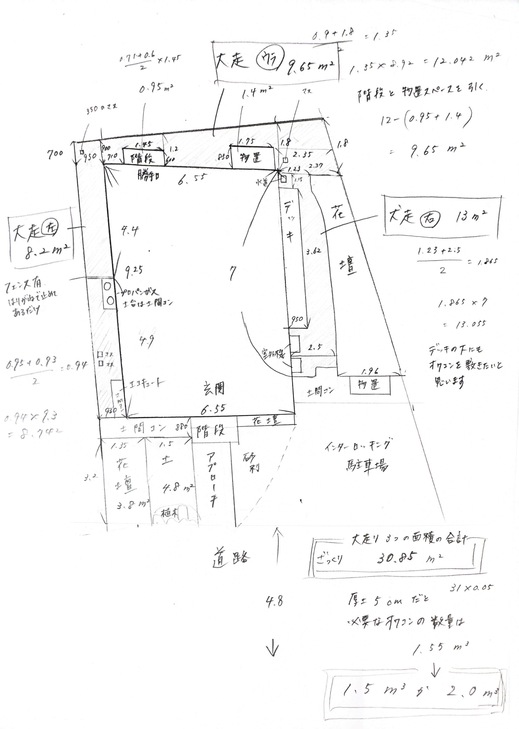 0.9+1.8
2
= 1.35
0.75+0.6
2
×1.45
0.95 m²
犬走 ウラ 9.65 m²
1.4 m²
1.35 × 8.92 = 12.042 m²
階段と物置スペースを引く
12-(0.95+1.4)
= 9.65 m²
700
950
900
710
1.45
階段
勝手口
1.2
6.55
1.75
850
物置
1.8
2.35
1.8
1.23
2.37
犬走 左
8.2 m²
フェンス有
はりがねで止めて
あるだけ
4.4
9.25
プロパンガス
土台は土間コン
4.9
エコキュート
0.95 + 0.93
2
= 0.94
0.94 × 9.3
= 8.742
7
デッキ
3.62
花壇
950
2.5
室外機
1.96
物置
土間コン
犬走 右 13 m²
1.23 + 2.5
2
= 1.865
1.865 × 7
= 13.055
デッキの下にも
オワコンを敷きたいと
思います
玄関
6.55
土間コン
880
階段
花壇
1.35
1.5
3.2
花壇
3.8 m²
土
4.8 m²
植木
アプローチ
砂利
インターロッキング
駐車場
道路
4.8
犬走り 3つの面積の合計
ざっくり 30.85 m²
31 × 0.05
厚さ 5cm だと
必要なオワコンの数量は
1.55 m³
1.5 m³ か 2.0 m³